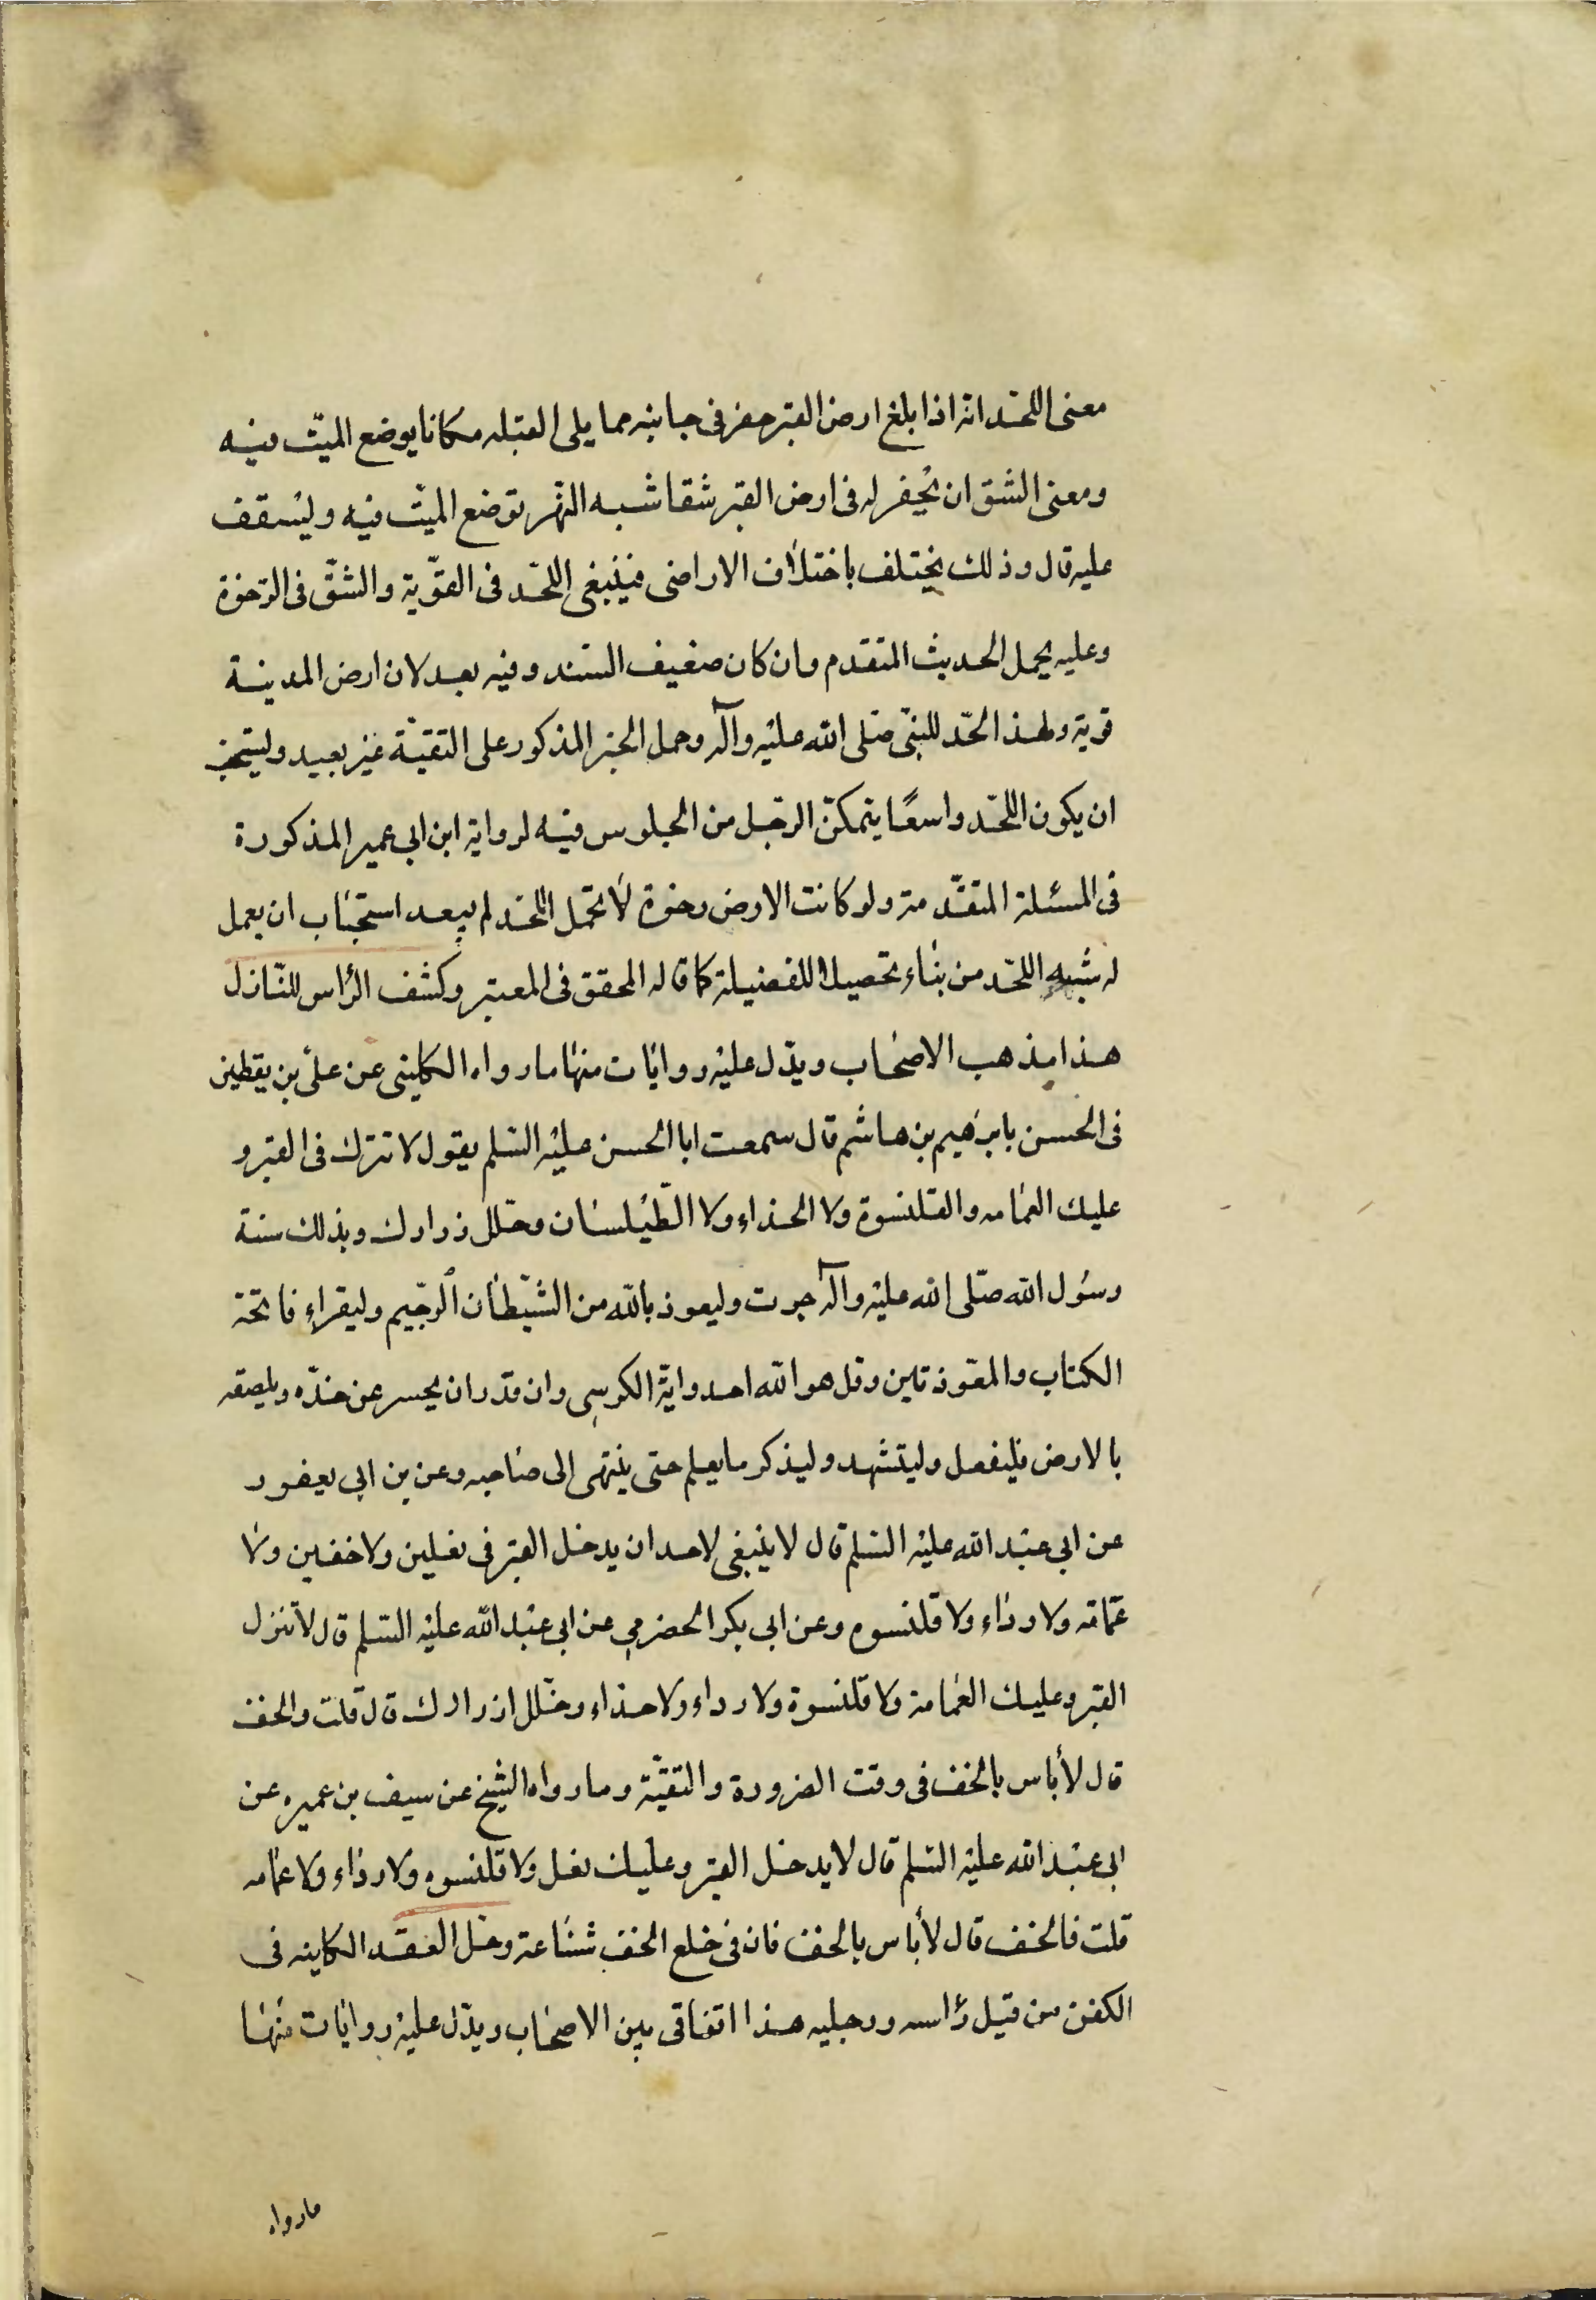 معنى اللحد انه اذا بلغ ارض القبر حفر فى جانبه مما يلى القبله مكانا يوضع الميّت فيه
ومعنى الشق ان يحفر له فى ارض القبر شقا شبه النهر توضع الميّت فيه ويسقف
عليه قال وذلك يختلف باختلاف الاراضى فينبغى اللحد فى القوّية والشقّ فى الرخوة
وعليه يحمل الحديث المتقدم وان كان ضعيف السند وفيه بعد لان ارض المدينة
قوية ولهذا الحّد للنبّى صّلى الله عليه وآله وحمل الخبر المذكور على التقيّة غير بعيد ويستحب
ان يكون اللحّد واسعًا يتمكّن الرجل من الجلوس فيه لرواية ابن ابى عمير المذكورة
فى المسئلة المتقدّمة ولو كانت الارض رخوة لا تحمل اللحد لم يبعد استحباب ان يعمل
له شبه اللحّد من بناء تحصيلا للفضيلة كما قاله المحقق فى المعتبر وكشف الرأس للنّازل
هذا مذهب الاصحاب ويدّل عليه روايات منها ما رواه الكلينى عن علّى بن يقطين
فى الحسن بابرهيم بن هاشم قال سمعت ابا الحسن عليه السّلم يقول لا تترك فى القبر و
عليك العمامه والقلنسوة ولا الحذاء ولا الطّيلسان وحّلل زرارك وبذلك سنة
رسول الله صّلى الله عليه وآله جرت وليعوذ باللّه من الشّيطان الرجّيم وليقراء فاتحة
الكتاب والمعّوذتين وقل هو اللّه احد واية الكرسى وان قدر ان يحسر عن خدّه ويلصقه
بالارض فليفعل وليتشهد وليذكر ما يعلم حتى ينتهى الى صاحبه وعن بن ابى يعفور
عن ابى عبد الله عليه السّلم قال لا ينبغى لاحد ان يدخل القبر فى نعلين ولا خفين ولا
عّمامه ولا رداء ولا قلنسوه وعن ابى بكر الحضرمى عن ابى عبد اللّه عليه السّلم قال لا تنزل
القبر وعليك العمامة ولا قلنسوة ولا رداء ولا حذاء وحّلل ازرارك قال قلت والخف
قال لأباس بالخف فى وقت الضرورة والتقيّة وما رواه الشيخ عن سيف بن عميره عن
ابى عبد اللّه عليه السّلم قال لا يدخل القبر وعليك نعل ولا قلنسوه ولا رداء ولا عمامه
قلت فالخف قال لأباس بالخف فان فى خلع الخف شناعة وحل العقد الكاينه فى
الكفن من قبل رأسه ورجليه هذا اتفاقى بين الاصحاب ويدّل عليه روايات منها
ما رواه